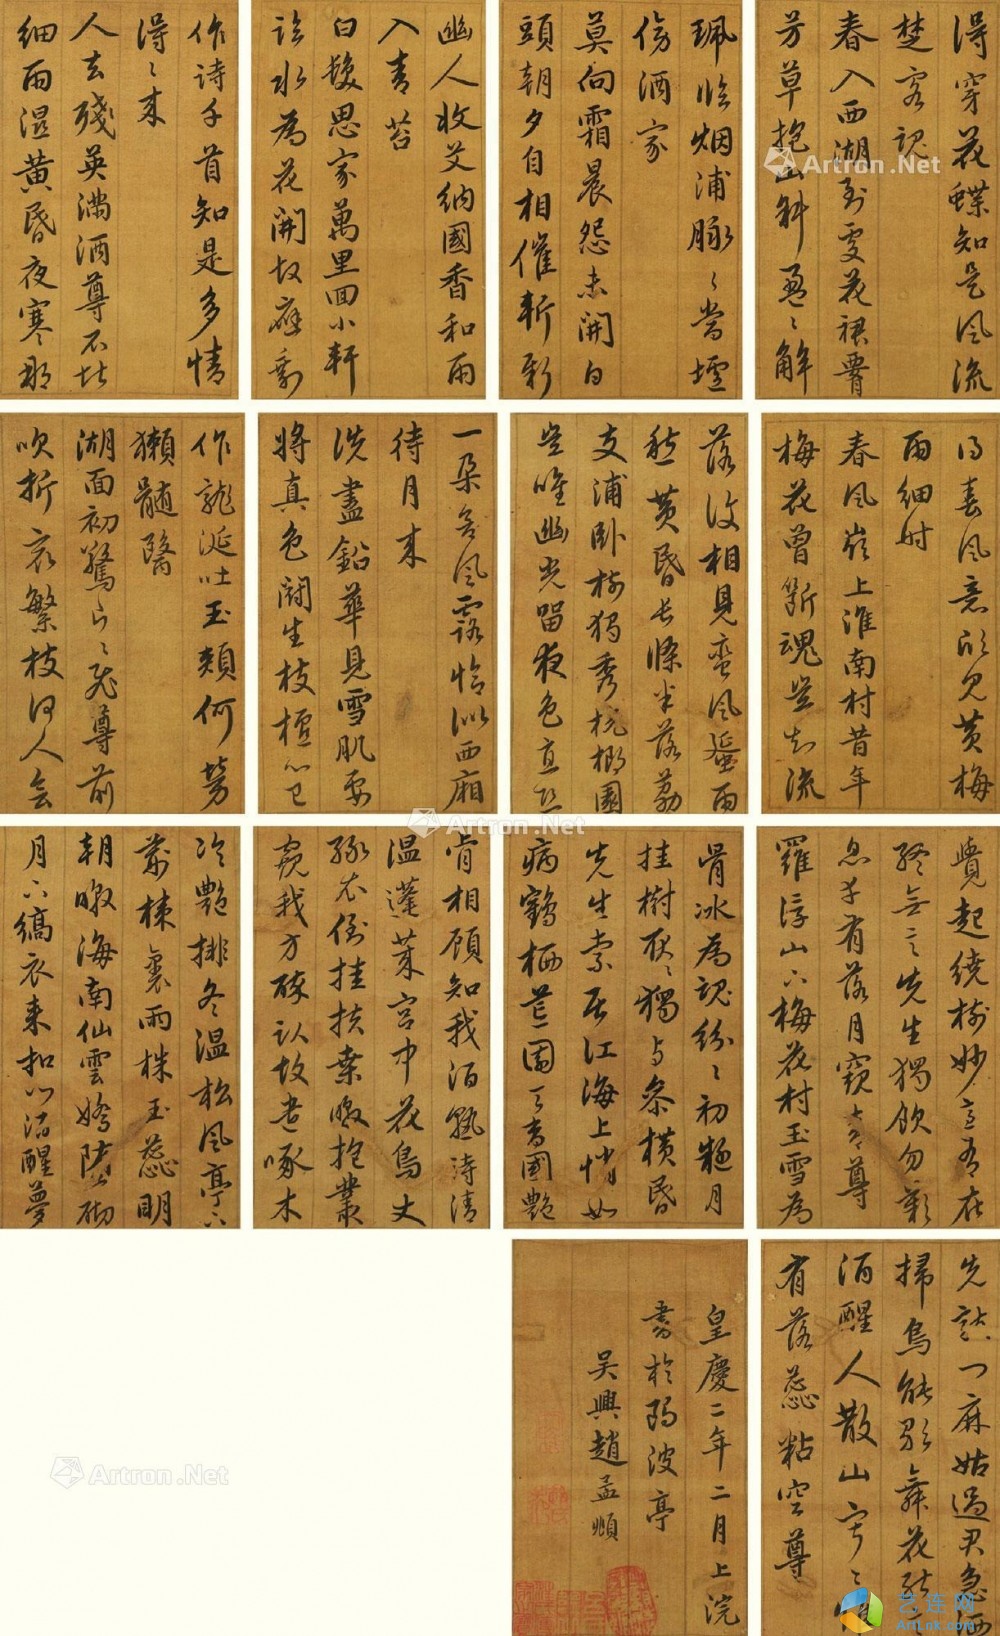 得穿花蝶知是風流
楚客魂
春入西湖到處花裙腰
芳草抱山斜盈盈解
珮臨烟浦脉脉當壚
傍酒家
莫向霜晨怨未開白
頭朝夕自相催斬新
幽人收艾納國香和雨
入青苔
白髮思家萬里回小軒
臨水為花開故應剩
作詩千首知是多情
得得來
人去殘英滿酒尊不堪
細雨濕黃昏夜寒那
得春風意怕見黃梅
雨細時
春風嶺上淮南村昔年
梅花曾斷魂豈知流
落復相見蠻風蜑雨
愁黃昏長條半落荔
支浦卧樹獨秀桄榔園
豈唯幽光留夜色直恐
一朵含風露恰似西廂
待月來
洗盡鉛華見雪肌要
將真色鬭生枝檀心已
作龍涎吐玉頰何勞
獺髓醫
湖面初驚片片飛尊前
吹折最繁枝何人會
覺起繞樹妙意有在
終無言先生獨飲勿歎
息幸有落月窺清尊
羅浮山下梅花村玉雪為
骨冰為魂紛紛初疑月
挂樹耿耿獨與參橫昏
先生索居江海上悄如
病鶴栖荒園天香國艷
肯相顧知我酒熟詩清
温蓬萊宮中花鳥使
綠衣倒挂扶桑暾抱叢
窺我方醉卧故遣啄木
冷艷排冬温松風亭下
荊棘裏兩株玉蕊明
朝暾海南仙雲嬌墮砌
月下縞衣來扣門酒醒夢
先敲門麻姑過君急洒
掃鳥能歌舞花能言
酒醒人散山寂寂惟
有落蕊粘空尊
皇慶二年二月上浣
書於鷗波亭
吳興趙孟頫
Artron.Net
Artron.Net
Artron.Net
艺连网
ArtLnk.com